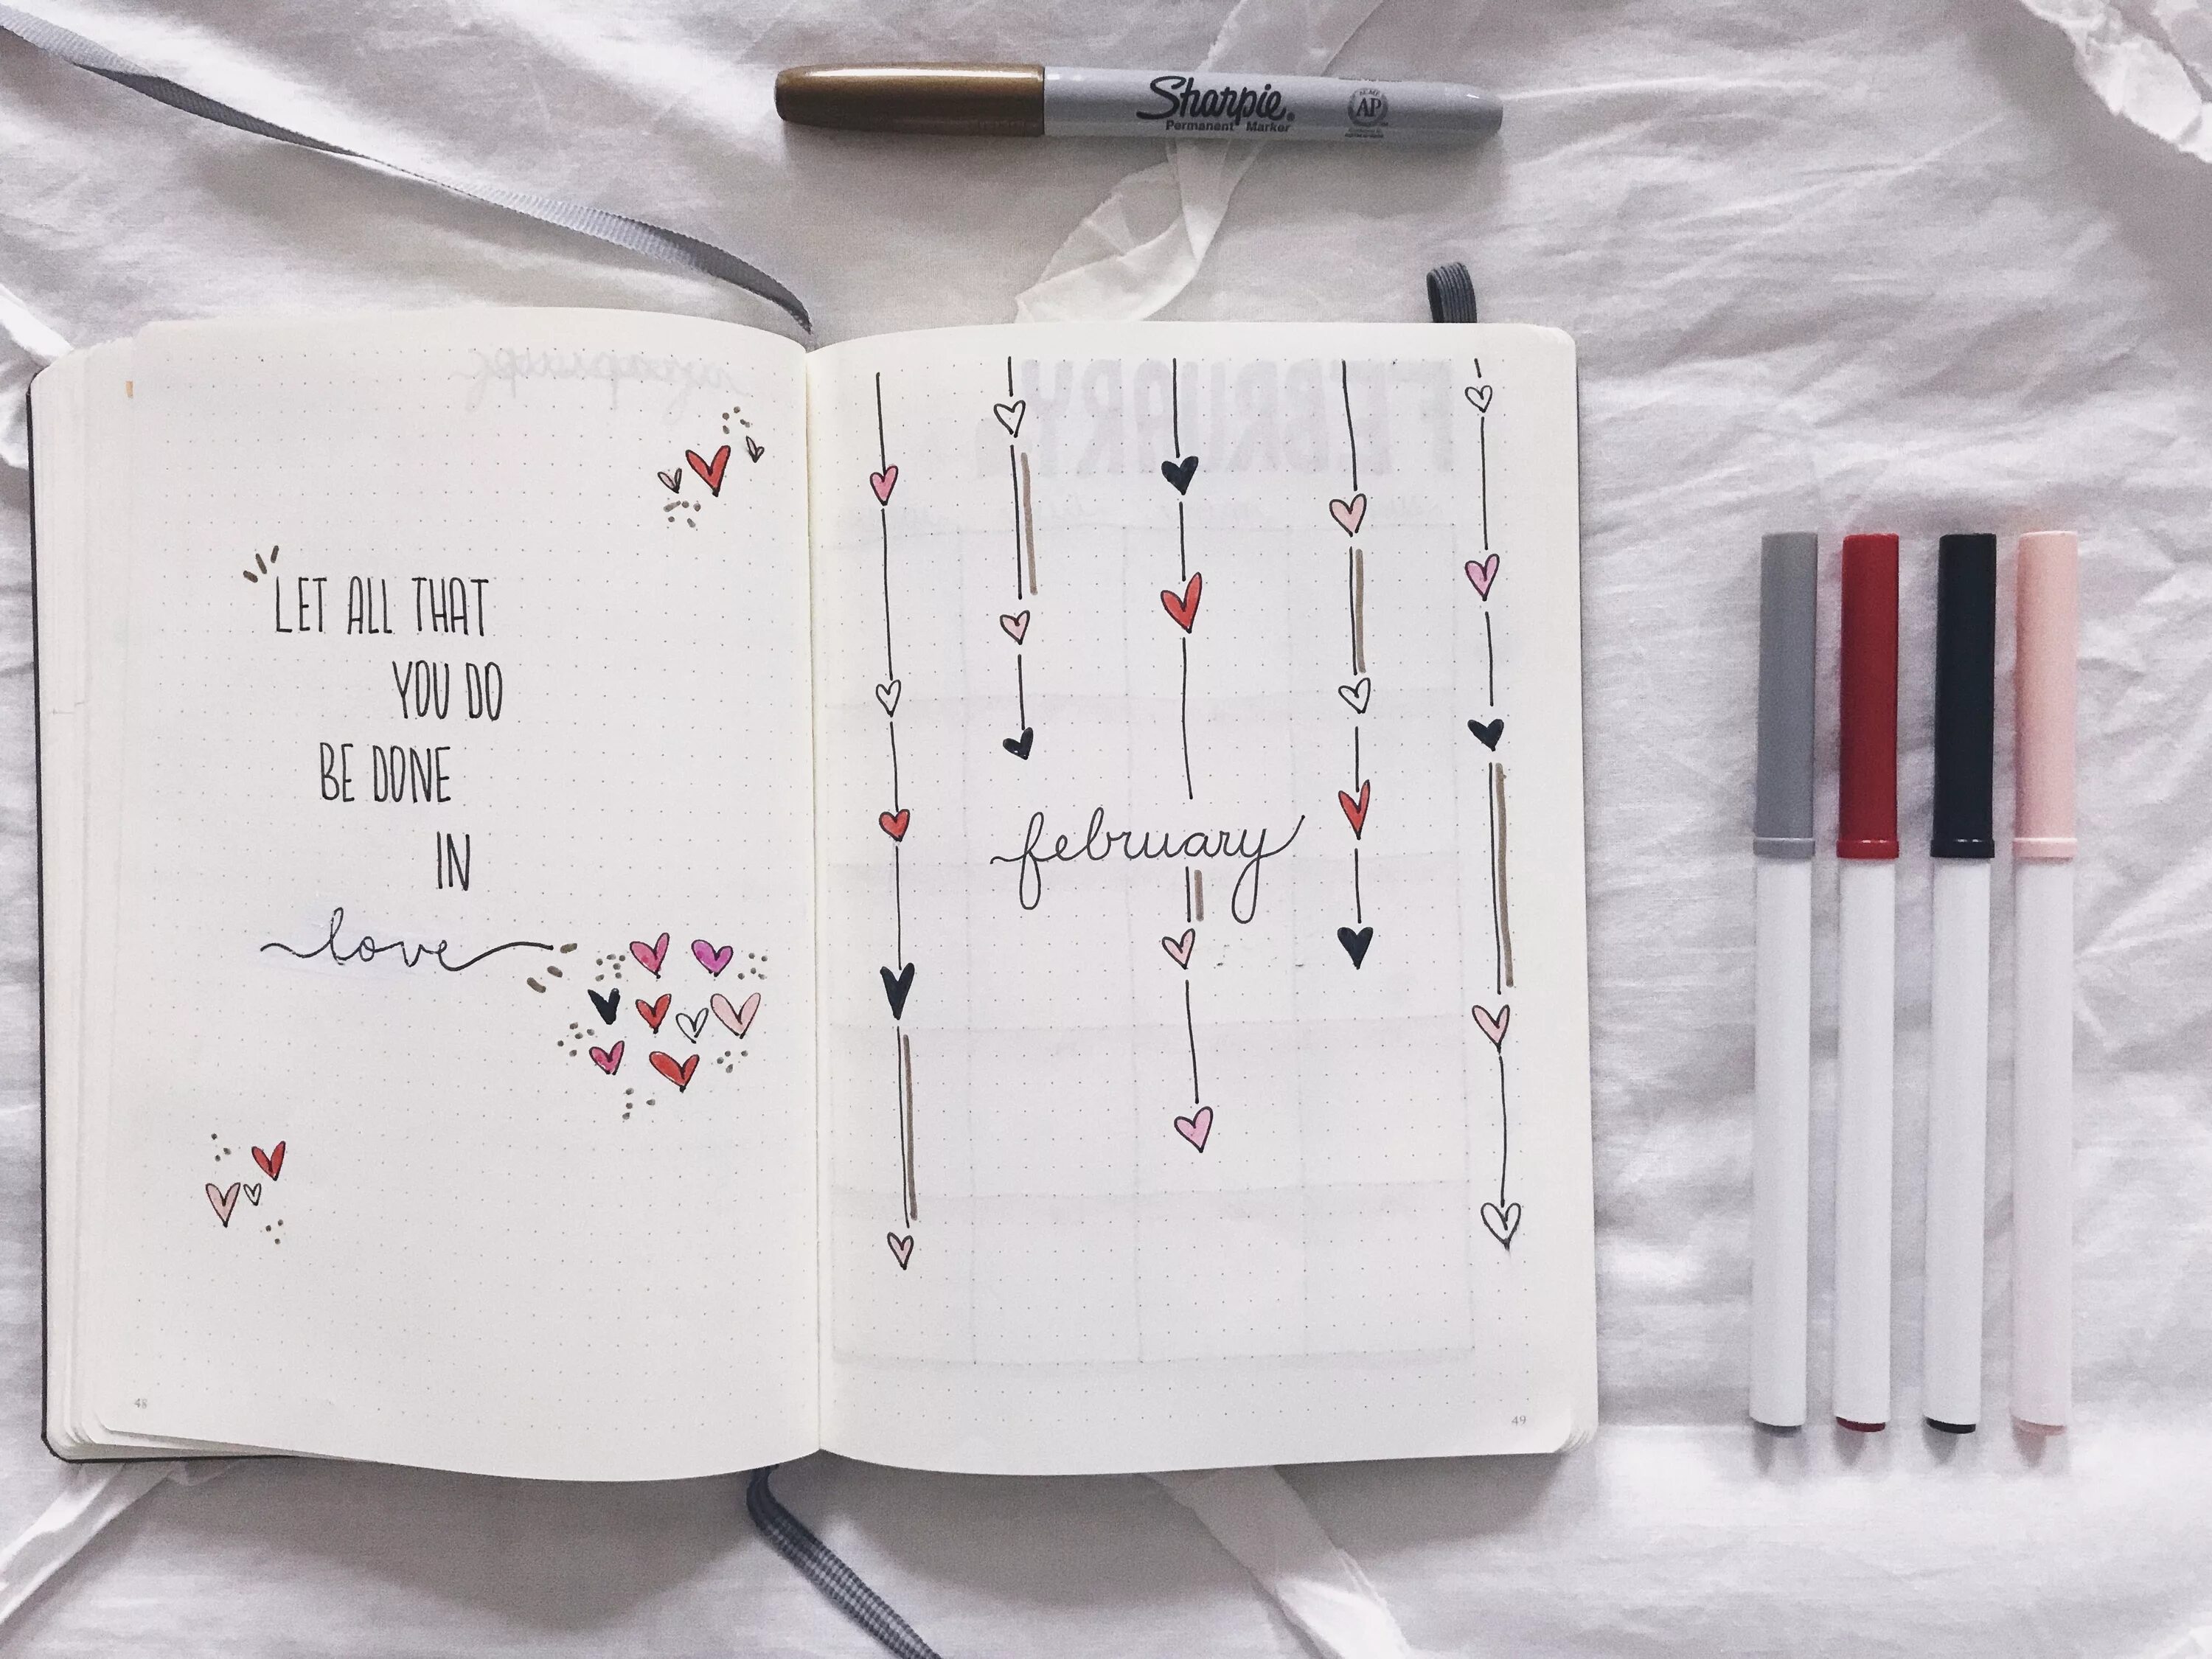 Sharpie.
Permanent Marker
AP
LET ALL THAT
YOU DO
BE DONE
IN
love
48
february
FEBRUARY
49